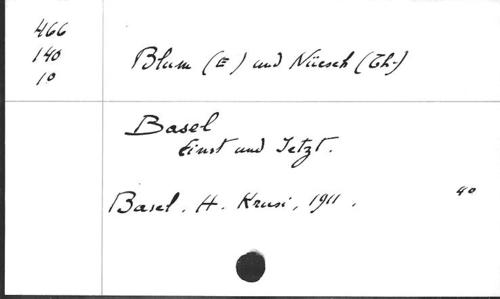 466
140
10
Blum (E) und Nüesch (Th.)
Basel
Einst und Jetzt.
Basel. H. Krusi, 1911.
4o